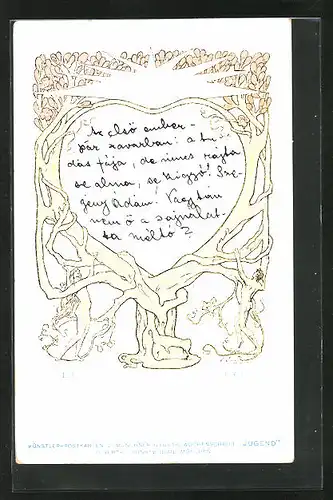 Az első ember-
pár zavarban: a tu-
dás fája, de nincs rajta
se alma, se kigyó! Sze-
gény Ádám! Vagy tán
nem ő a sajnálat-
ra méltó?
KÜNSTLER-POSTKARTEN "JUGEND"